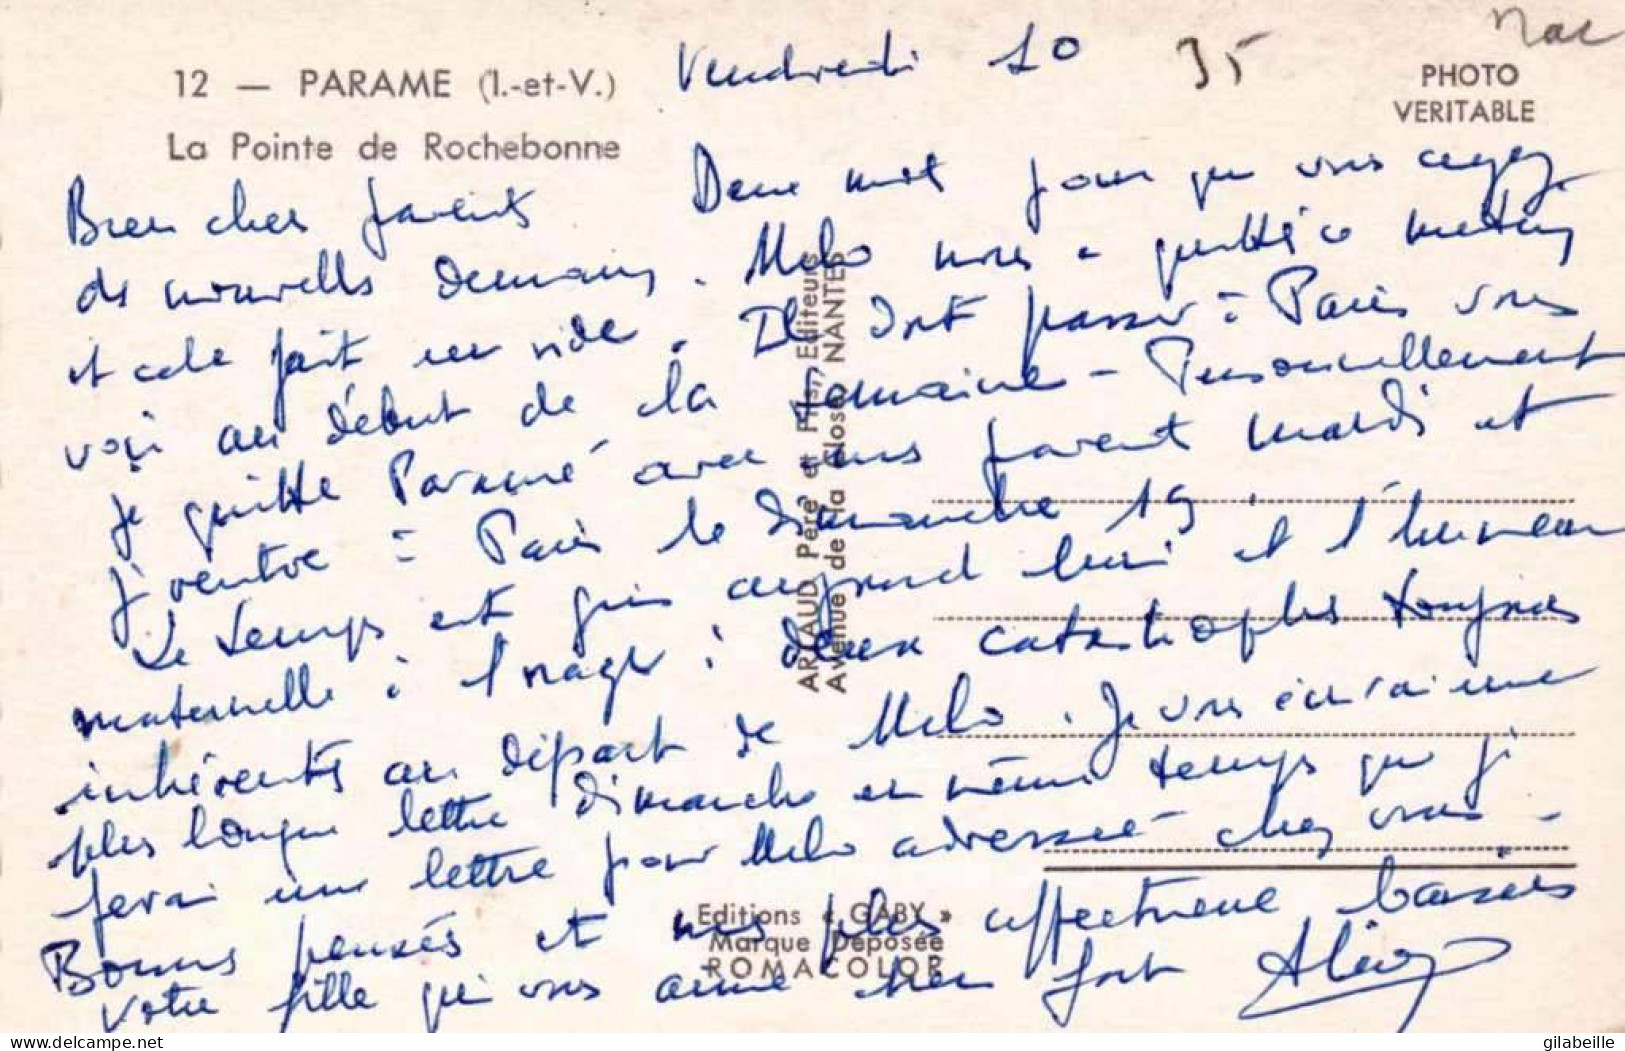 Vendredi 10
35
12 — PARAME (I.-et-V.)
La Pointe de Rochebonne
PHOTO
VERITABLE
Bien chers parents Deux mots pour que vous ayez
des nouvelles demain. Melo nous a quitté ce matin
et cela fait un vide. Il doit passer à Paris vous
voir au début de la semaine - Personnellement
je quitte Paramé avec mes parents mardi et
je rentre à Paris le dimanche 19.
Le temps est gris aujourd'hui et l'humeur
maternelle à l'orage : deux catastrophes toujours
inhérentes au départ de Melo. Je vous écrirai une
plus longue lettre dimanche en même temps que je
ferai une lettre pour Melo adressée chez vous -
Bonnes pensées et mes plus affectueux baisers
Votre fille qui vous aime bien fort
ARTAUD Père et Fils, Editeurs
Avenue de la Close, NANTES
Editions « GABY »
Marque Déposée
ROMACOLOR
www.delcampe.net
gilabeille